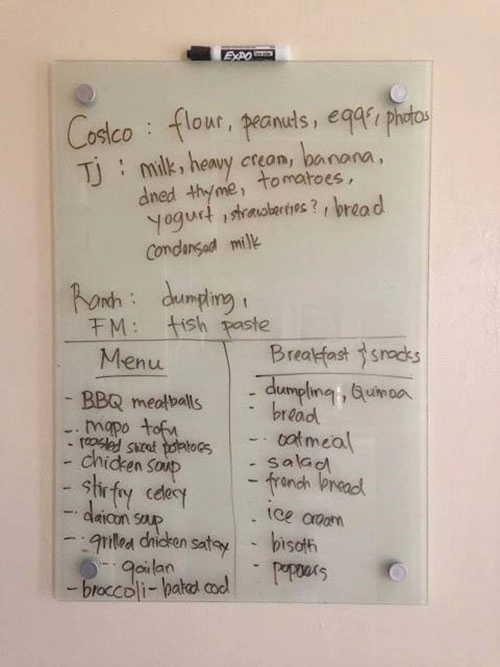 EXPO
Costco : flour, peanuts, eggs, photos
Tj : milk, heavy cream, banana,
dried thyme, tomatoes,
yogurt, strawberries?, bread
condensed milk
Ranch : dumpling,
FM : fish paste
Menu
- BBQ meatballs
- mapo tofu
- roasted sweet potatoes
- chicken soup
- stir fry celery
- daicon soup
- grilled chicken satay
- gailan
- broccoli - baked cod
Breakfast & snacks
- dumpling, Quinoa
- bread
- oatmeal
- salad
- french bread
- ice cream
- biscotti
- poppers